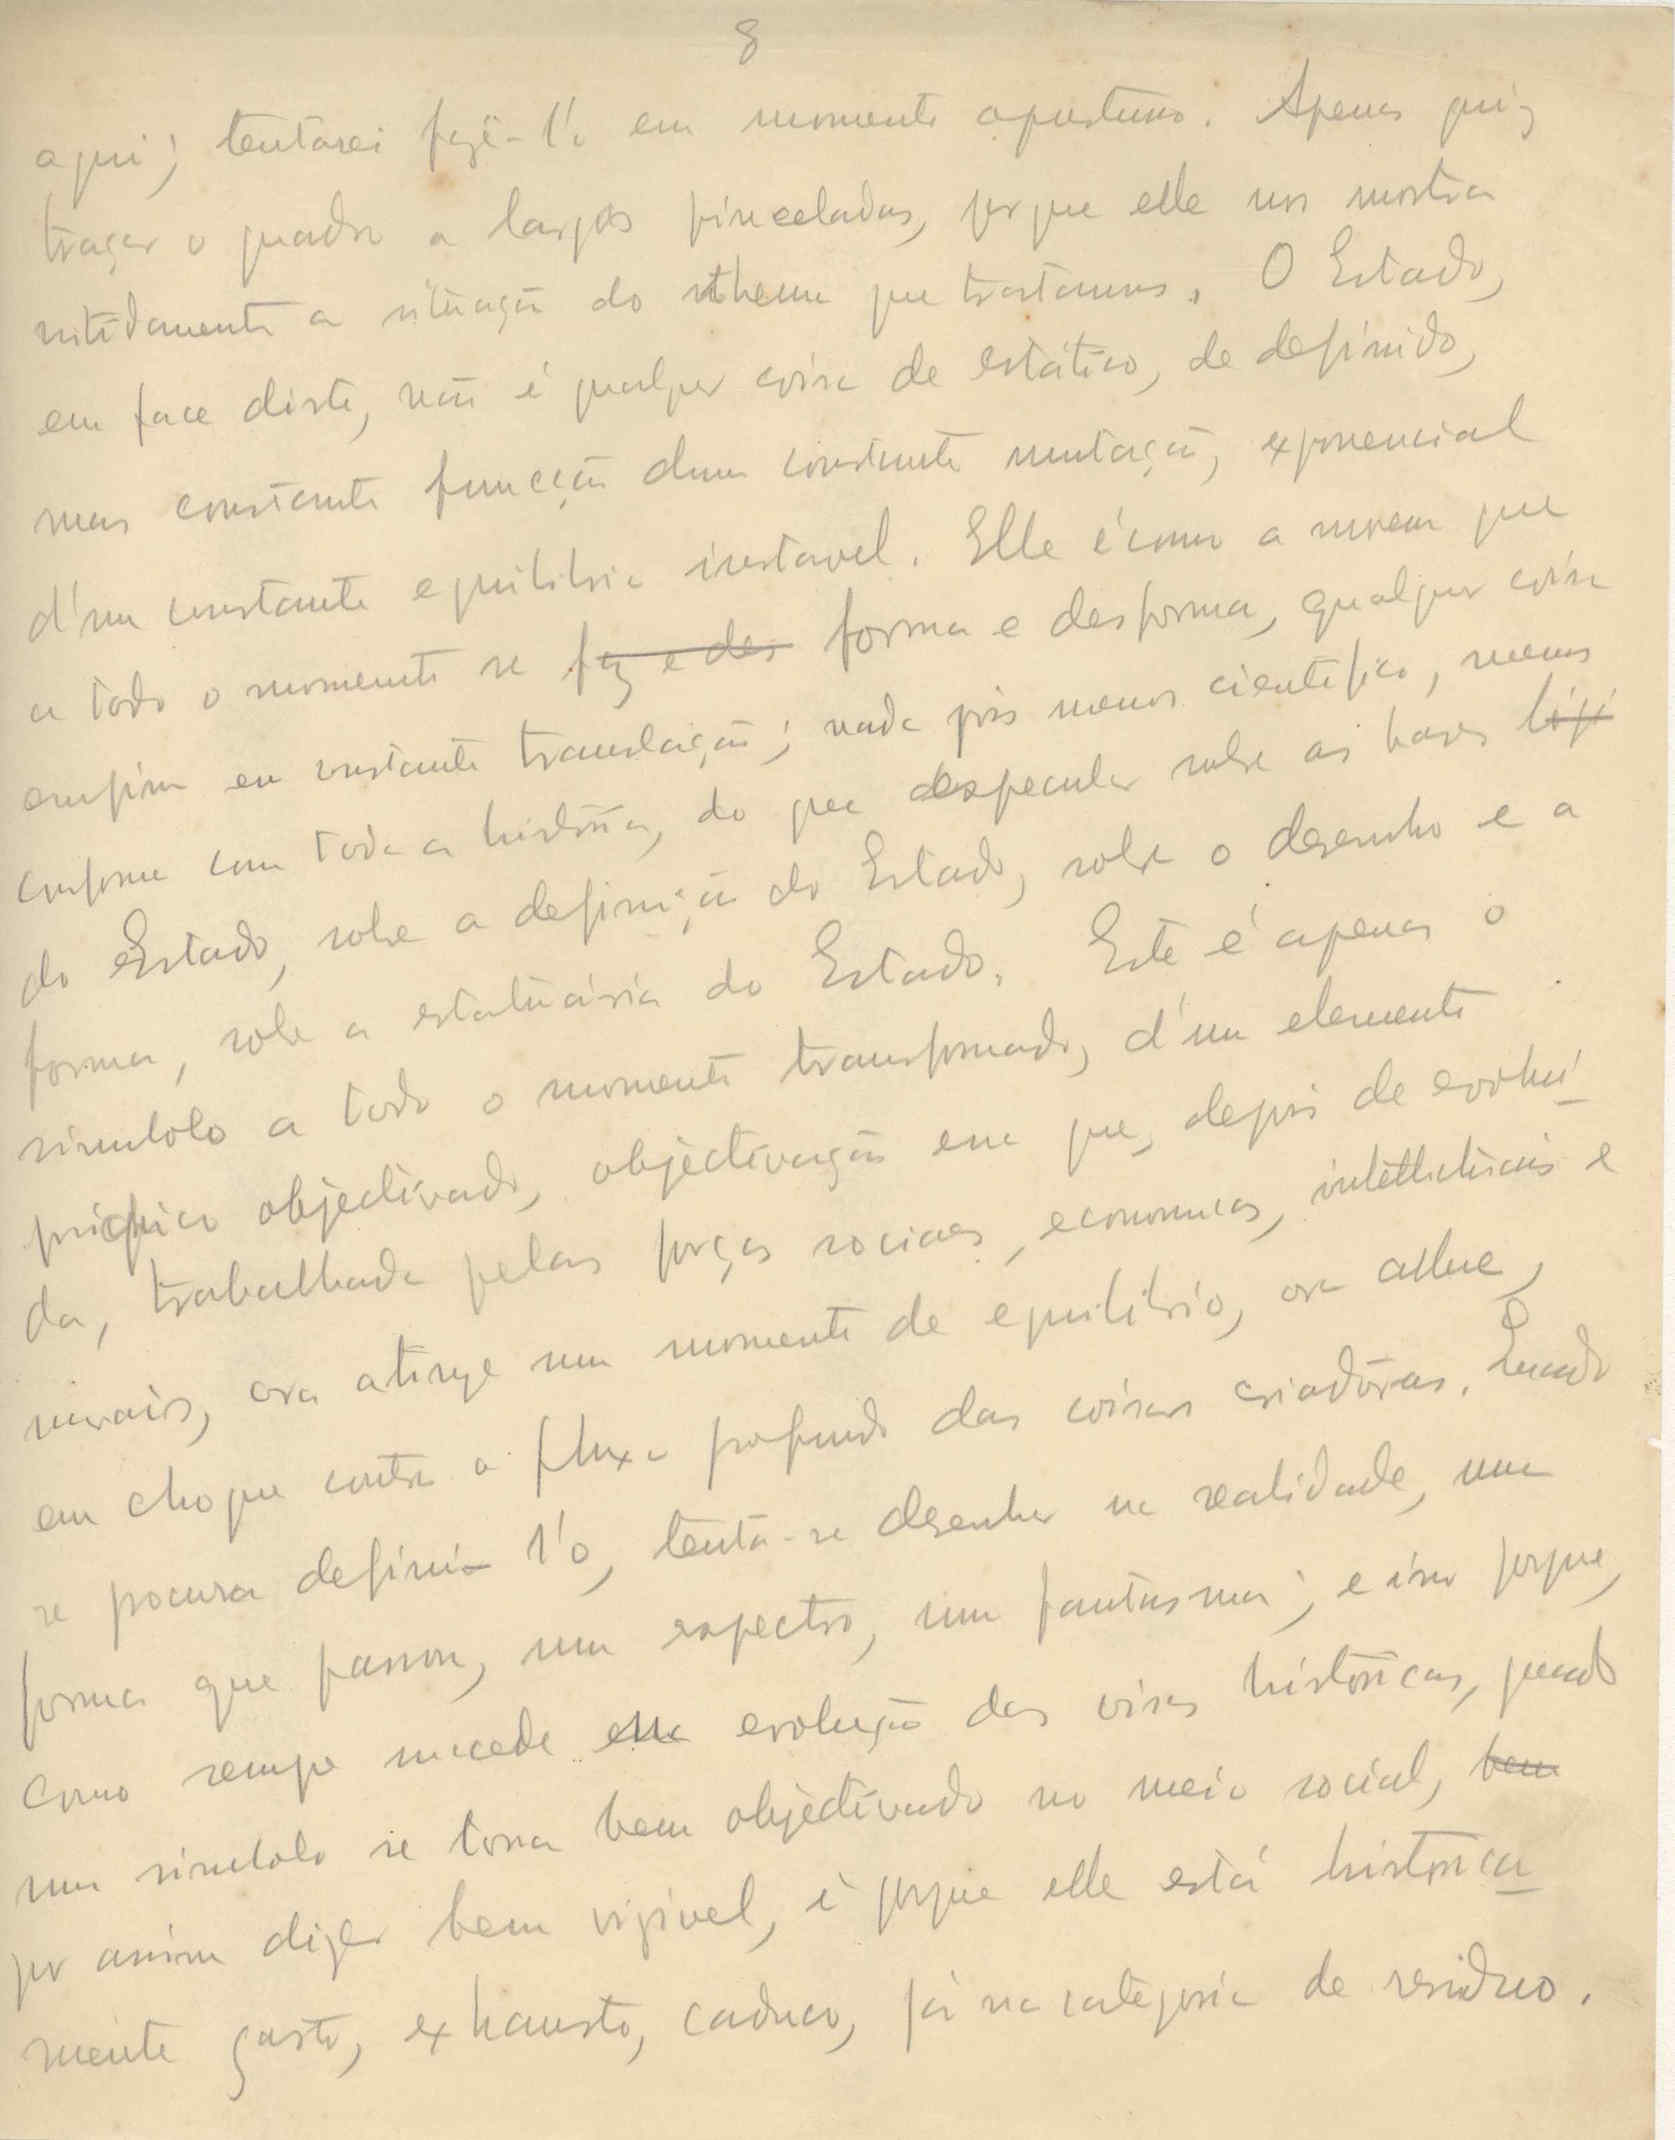 8
aqui; tentarei fazê-l'o em momento oportuno. Apenas quiz
traçar o quadro a largas pinceladas, porque elle nos mostra
nitidamente a situação do thema que tratamos. O Estado,
em face disto, não é qualquer coisa de estático, de definido,
mas constante funcção duma constante mutação, exponencial
d'um constante equilibrio instavel. Elle é como a nuvem que
a todo o momento se fez e des forma e desforma, qualquer coisa
emfim em constante translação; nada pois menos cientifico, menos
conforme com toda a história, do que especular sobre as bases lógi
do Estado, sobre a definição do Estado, sobre o desenho e a
forma, sobre a estatuária do Estado. Este é apenas o
simbolo a todo o momento transformado, d'um elemento
psiquico objectivado, objectivação em que, depois de evoluí-
da, trabalhada pelas forças sociaes, economicas, intellectuais e
morais, ora atinge um momento de equilibrio, ora alue,
em choque contra o fluxo profundo das coisas criadôras. Quando
se procura defini-l'o, tenta-se desenhar na realidade, uma
forma que passou, um espectro, um fantasma; e isso porque,
como sempre sucede na evolução das coisas históricas, quando
um simbolo se torna bem objectivado no meio social, bem
por assim dizer bem vizivel, é porque elle está historica-
mente gasto, exhausto, caduco, já na categoria de residuo.